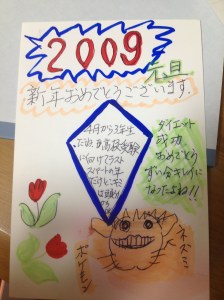 2009
元旦
新年おめでとうございます
4月から3年生
だね!高校受験
に向けてラスト
スパートの年
だけど
は頑
ダイエット
成功
おめでとう
すい分キレイに
なったよね!!
ネズミ
ポケモン